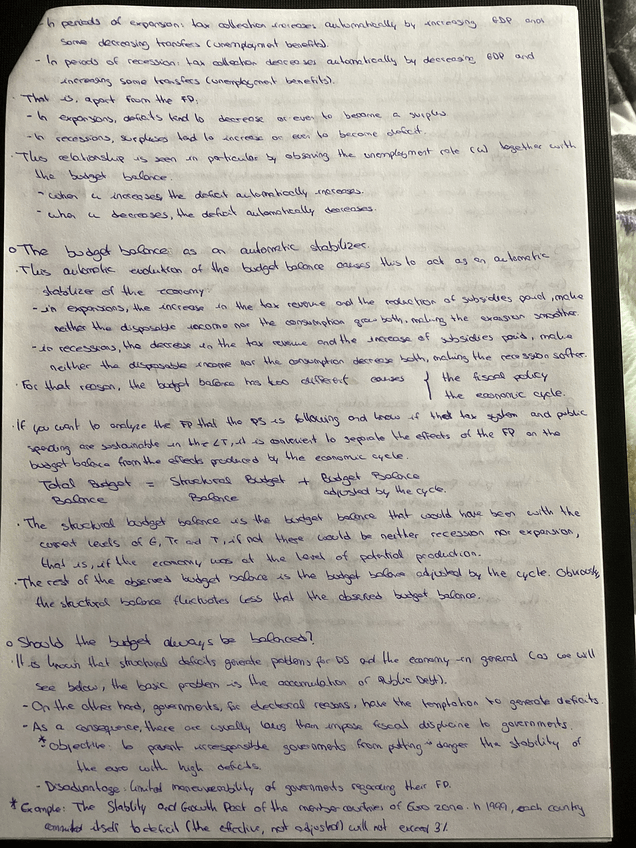 - In periods of expansion: tax collection increases automatically by increasing GDP and
some decreasing transfers (unemployment benefits).
- In periods of recession: tax collection decreases automatically by decreasing GDP and
increasing some transfers (unemployment benefits).
· That is, apart from the FP:
- In expansions, deficits tend to decrease or even to become a surplus
- In recessions, surpluses tend to increase or even to become deficit.
· This relationship is seen in particular by observing the unemployment rate (u) together with
the budget balance.
- when u increases, the deficit automatically increases.
- when u decreases, the deficit automatically decreases.
o The budget balance as an automatic stabilizer.
· This automatic evolution of the budget balance causes this to act as an automatic
stabilizer of the economy:
- in expansions, the increase in the tax revenue and the reduction of subsidies paid, make
neither the disposable income nor the consumption grow both, making the expansion smoother.
- in recessions, the decrease in the tax revenue and the increase of subsidies paid, make
neither the disposable income nor the consumption decrease both, making the recession softer.
· For that reason, the budget balance has too different causes { the fiscal policy
the economic cycle.
· If you want to analyze the FP that the PS is following and know if that tax system and public
spending are sustainable in the LT, it is convenient to separate the effects of the FP on the
budget balance from the effects produced by the economic cycle.
Total Budget = Structural Budget + Budget Balance
Balance Balance adjusted by the cycle.
· The structural budget balance is the budget balance that would have been with the
current levels of G, Tr and T, if not there would be neither recession nor expansion,
that is, if the economy was at the level of potential production.
· The rest of the observed budget balance is the budget balance adjusted by the cycle. Obviously,
the structural balance fluctuates less that the observed budget balance.
o Should the budget always be balanced?
· It is known that structural deficits generate problems for PS and the economy in general (as we will
see below, the basic problem is the accumulation of Public Debt).
- On the other hand, governments, for electoral reasons, have the temptation to generate deficits.
- As a consequence, there are usually laws than impose fiscal displicine to governments.
* Objective: to prevent irresponsible governments from putting danger the stability of
the euro with high deficits.
- Disadvantage: limited maneuverability of governments regarding their FP.
* Example: The Stability and Growth Pact of the member countries of Euro zone. In 1999, each country
commited itself to deficit (the effective, not adjusted) will not exceed 3%